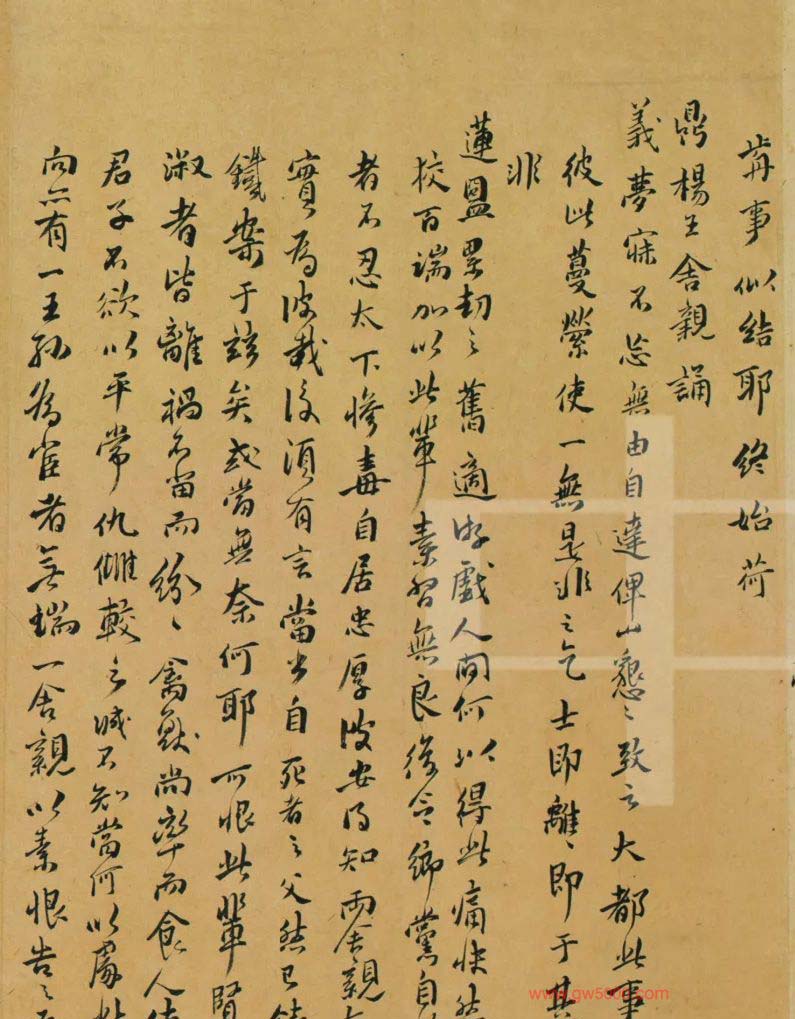 事似結耶終始荷
鼎楊王舍親誦
義夢寐不忘無由自達俾山懇〻致言大都此事
彼此蔓縈使一無是非之乞士即離〻即于其
非
蓮盟累劫之舊適遊戲人間何以得此痛快然
校百端加以此輩素習無良後令鄉黨自
者不忍太下慘毒自居忠厚彼安得知兩舍親
實為彼載後須有言當出自死者之父然已
鐵案于茲矣或當無奈何耶所恨此輩賢
淑者皆離禍不留而紛〻禽獸尚率而食人
君子不欲以平常仇讎較之誠不知當何以處此
向亦有一王孫為官者無端一舍親以素恨告之
www.gw5000.com